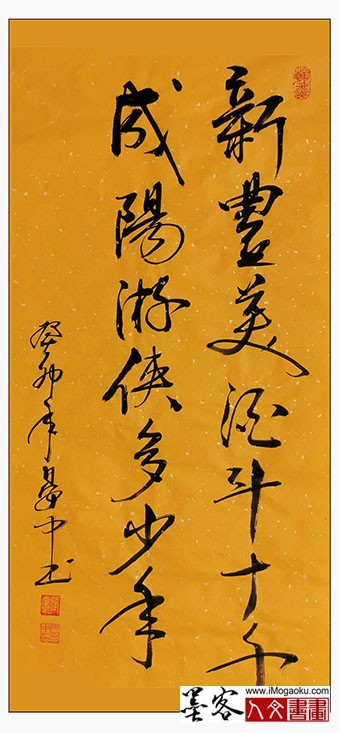 新豐美酒斗十千
咸陽游俠多少年
癸卯年
中书
墨客
www.iMogaoku.com
人文書畫